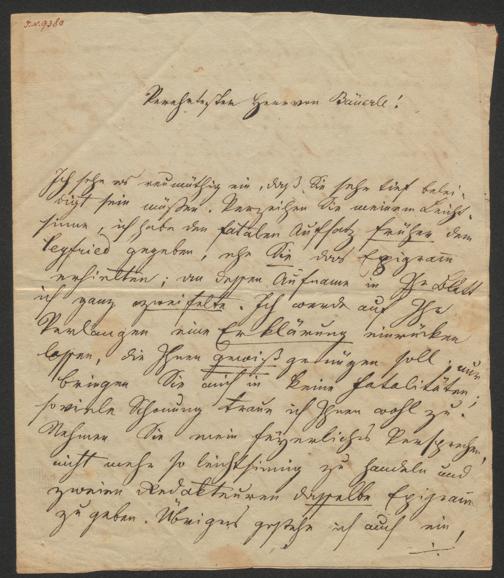 J.N. 9380
Verehrtester Herr von Bäuerle!
Ich sehe es reumüthig ein, daß Sie sehr tief belei-
digt sein müßen. Verzeihen Sie meinem Leicht-
sinne, ich habe den fatalen Aufsatz früher dem
Seyfried gegeben, ehe Sie das Epigramm
erhielten; an dessen Aufname in Ihr Blatt
ich ganz zweifelte. Ich werde auf Ihr
Verlangen eine Erklärung einrücken
lassen, die Ihnen gewiß genügen soll; nur
bringen Sie mich in keine Fatalitäten;
soviele Schonung traue ich Ihnen wohl zu.
Nehmen Sie mein feyerliches Versprechen,
nicht mehr so leichtsinnig zu handeln und
zweien Redakteuren dasselbe Epigramm
zu geben. Übrigens gestehe ich auch ein,